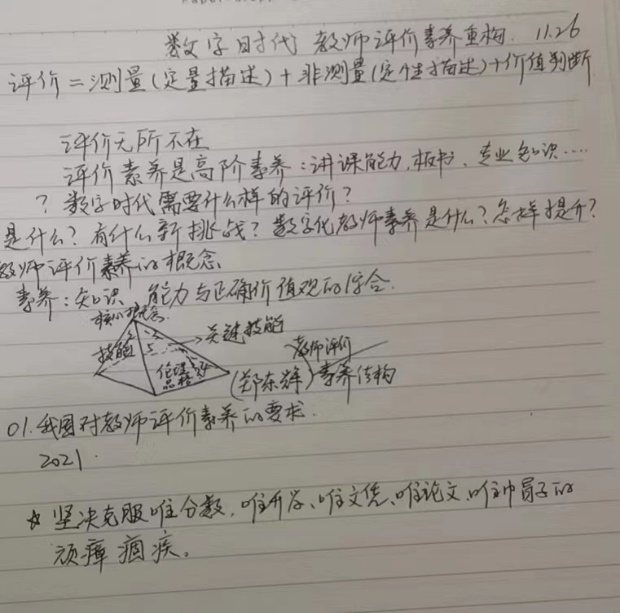 数字时代 教师评价素养重构 11.26
评价=测量(定量描述)+非测量(定性描述)+价值判断
评价无所不在
评价素养是高阶素养:讲课能力、板书、专业知识....
? 数字时代需要什么样的评价?
是什么? 有什么新挑战? 数字化教师素养是什么?怎样提升?
教师评价素养的概念
素养:知识 能力与正确价值观的综合.
核心概念
技能 关键技能
教师评价
伦理品格
(郑东辉)素养结构
01.我国对教师评价素养的要求.
2021.
☆ 坚决克服唯分数、唯升学、唯文凭、唯论文、唯帽子的
顽瘴痼疾。